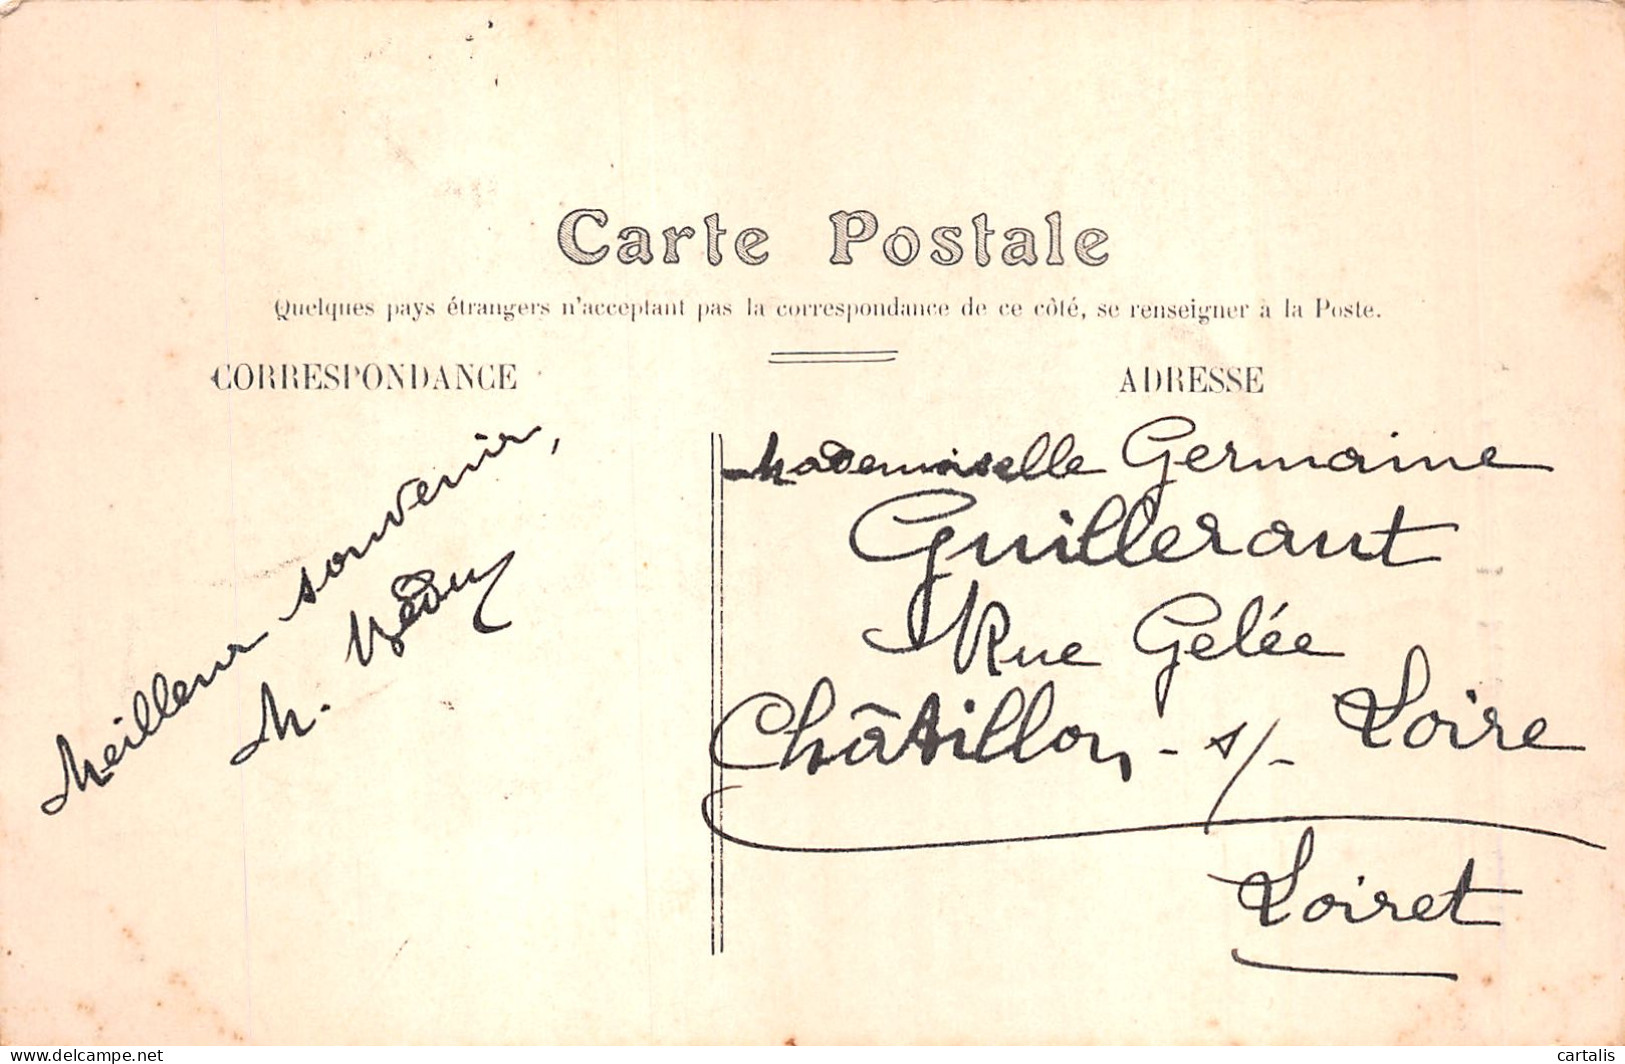 Carte Postale
Quelques pays étrangers n'acceptant pas la correspondance de ce côté, se renseigner à la Poste.
CORRESPONDANCE
ADRESSE
Meilleur souvenir,
M.
Mademoiselle Germaine
Guilleraut
Rue Gelée
Châtillon-s/-Loire
Loiret
www.delcampe.net
cartalis